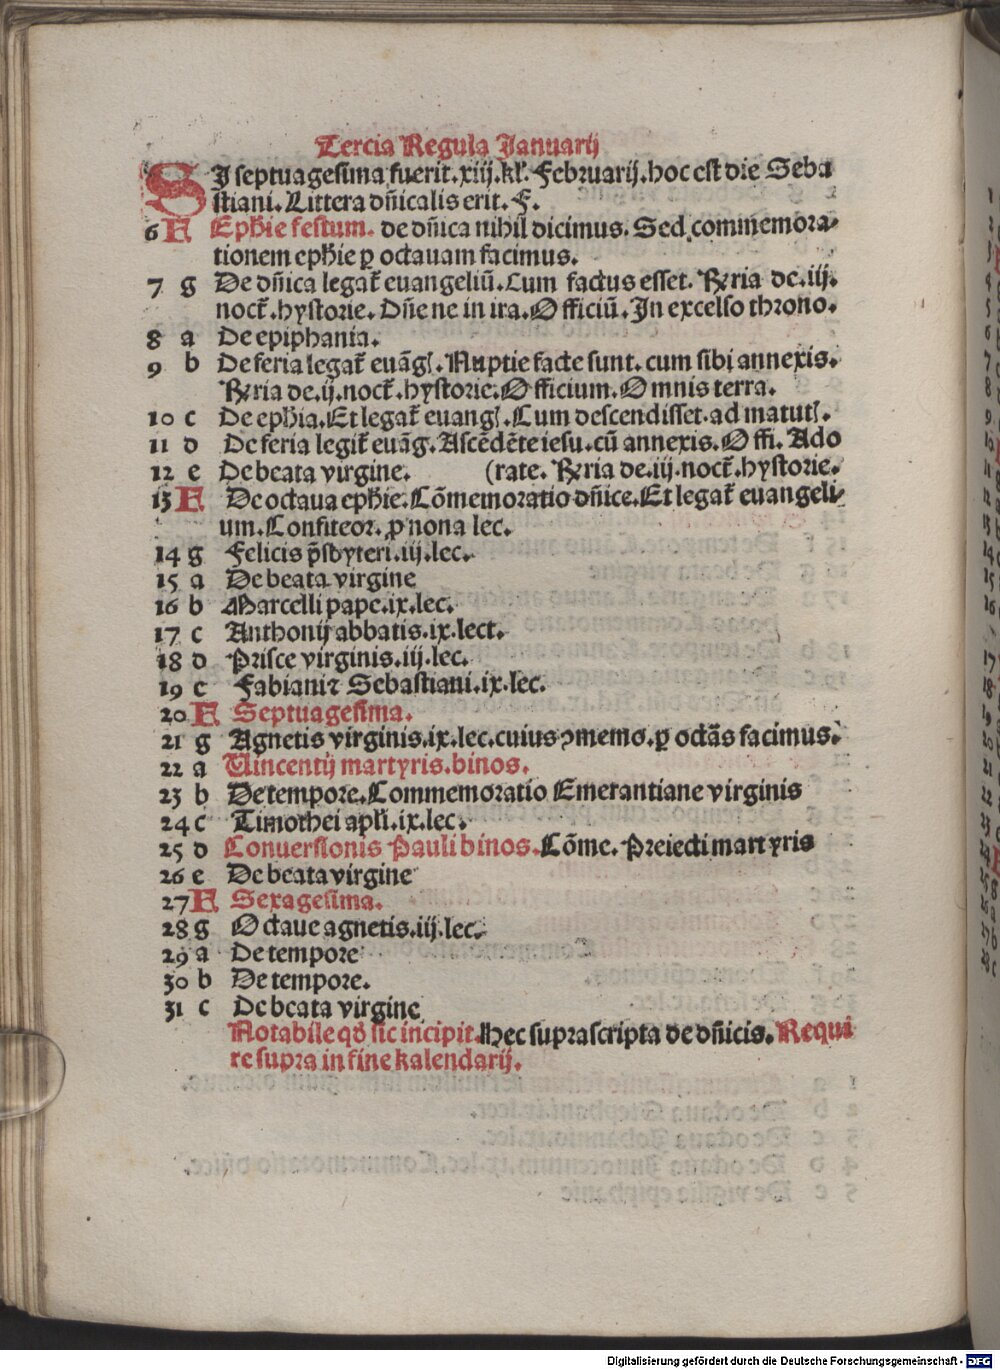 Tercia Regula Januarij
SI septuagesima fuerit.xiij.kl'.Februarij.hoc est die Seba
stiani.Littera dn̄icalis erit.F.
6 F Epħie festum. de dn̄ica nihil dicimus. Sed commemora⸗
tionem epħie ꝑ octauam facimus.
7 g De dn̄ica legat̄ euangeliū.Cum factus esset. R̄ria de.iij.
noct̄.hystorie. Dn̄e ne in ira.Officiū.In excelso throno.
8 a De epiphania.
9 b De feria legat̄ euāgl.Nuptie facte sunt.cum sibi annexis.
R̄ria de.ij.noct̄.hystorie.Officium.Omnis terra.
10 c De epħia.Et legat̄ euangl.Cum descendisset.ad matutl.
11 d De feria legit̄ euāg.Ascēdēte iesu.cū annexis.Offi.Ado
12 e De beata virgine. (rate. R̄ria de.iij.noct̄.hystorie.
13 F De octaua epħie.Cōmemoratio dn̄ice.Et legat̄ euangeli⸗
um.Confiteor.ꝓ nona lec.
14 g Felicis p̄sbyteri.iij.lec.
15 a De beata virgine
16 b Marcelli pape.ix.lec.
17 c Anthonij abbatis.ix.lect.
18 d Prisce virginis.iij.lec.
19 e Fabiani⁊ Sebastiani.ix.lec.
20 F Septuagesima.
21 g Agnetis virginis.ix.lec.cuius ꝯmemo.ꝑ octās facimus.
22 a Vincentij martyris.binos.
23 b De tempore.Commemoratio Emerantiane virginis
24 c Timothei apl'i.ix.lec.
25 d Conuersionis Pauli binos.Cōme.Preiecti martyris
26 e De beata virgine
27 F Sexagesima.
28 g Octaue agnetis.iij.lec.
29 a De tempore
30 b De tempore.
31 c De beata virgine
Notabile qd̄ sic incipit.Hec suprascripta de dn̄icis. Requi
re supra in fine kalendarij.
Digitalisierung gefördert durch die Deutsche Forschungsgemeinschaft - DFG